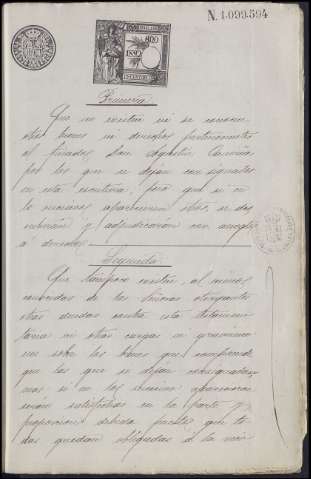 N. 1.099.594
1892
Primera
Que no existen ni se conocen
otros bienes ni derechos pertenecientes
al finado Don Agustin
por los que se dejan consignados
en esta escritura, pero que si en
lo sucesivo aparecieren otros, se dis
tribuirán y adjudicarán con arreglo
á derecho.
Segunda
Que tampoco existen, al menos
conocidas de las Señoras otorgantes
otras deudas contra esta testamen
taria ni otras cargas ni gravámenes
sobre los bienes que comprende
que las que se dejan consignadas
mas si en lo sucesivo aparecieren
serán satisfechas en la parte y
proporcion debida puesto que to
das quedan obligadas á la